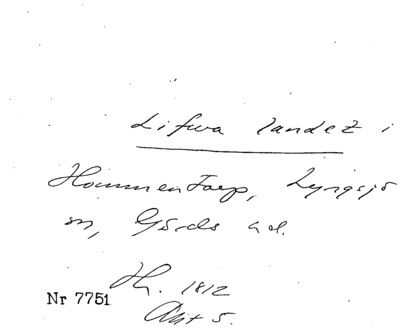 Lifwa landet i
Hommentorp, Lyngsjö
sn, Gärds hd.
Hl. 1812
Nr 7751
Akt 5.